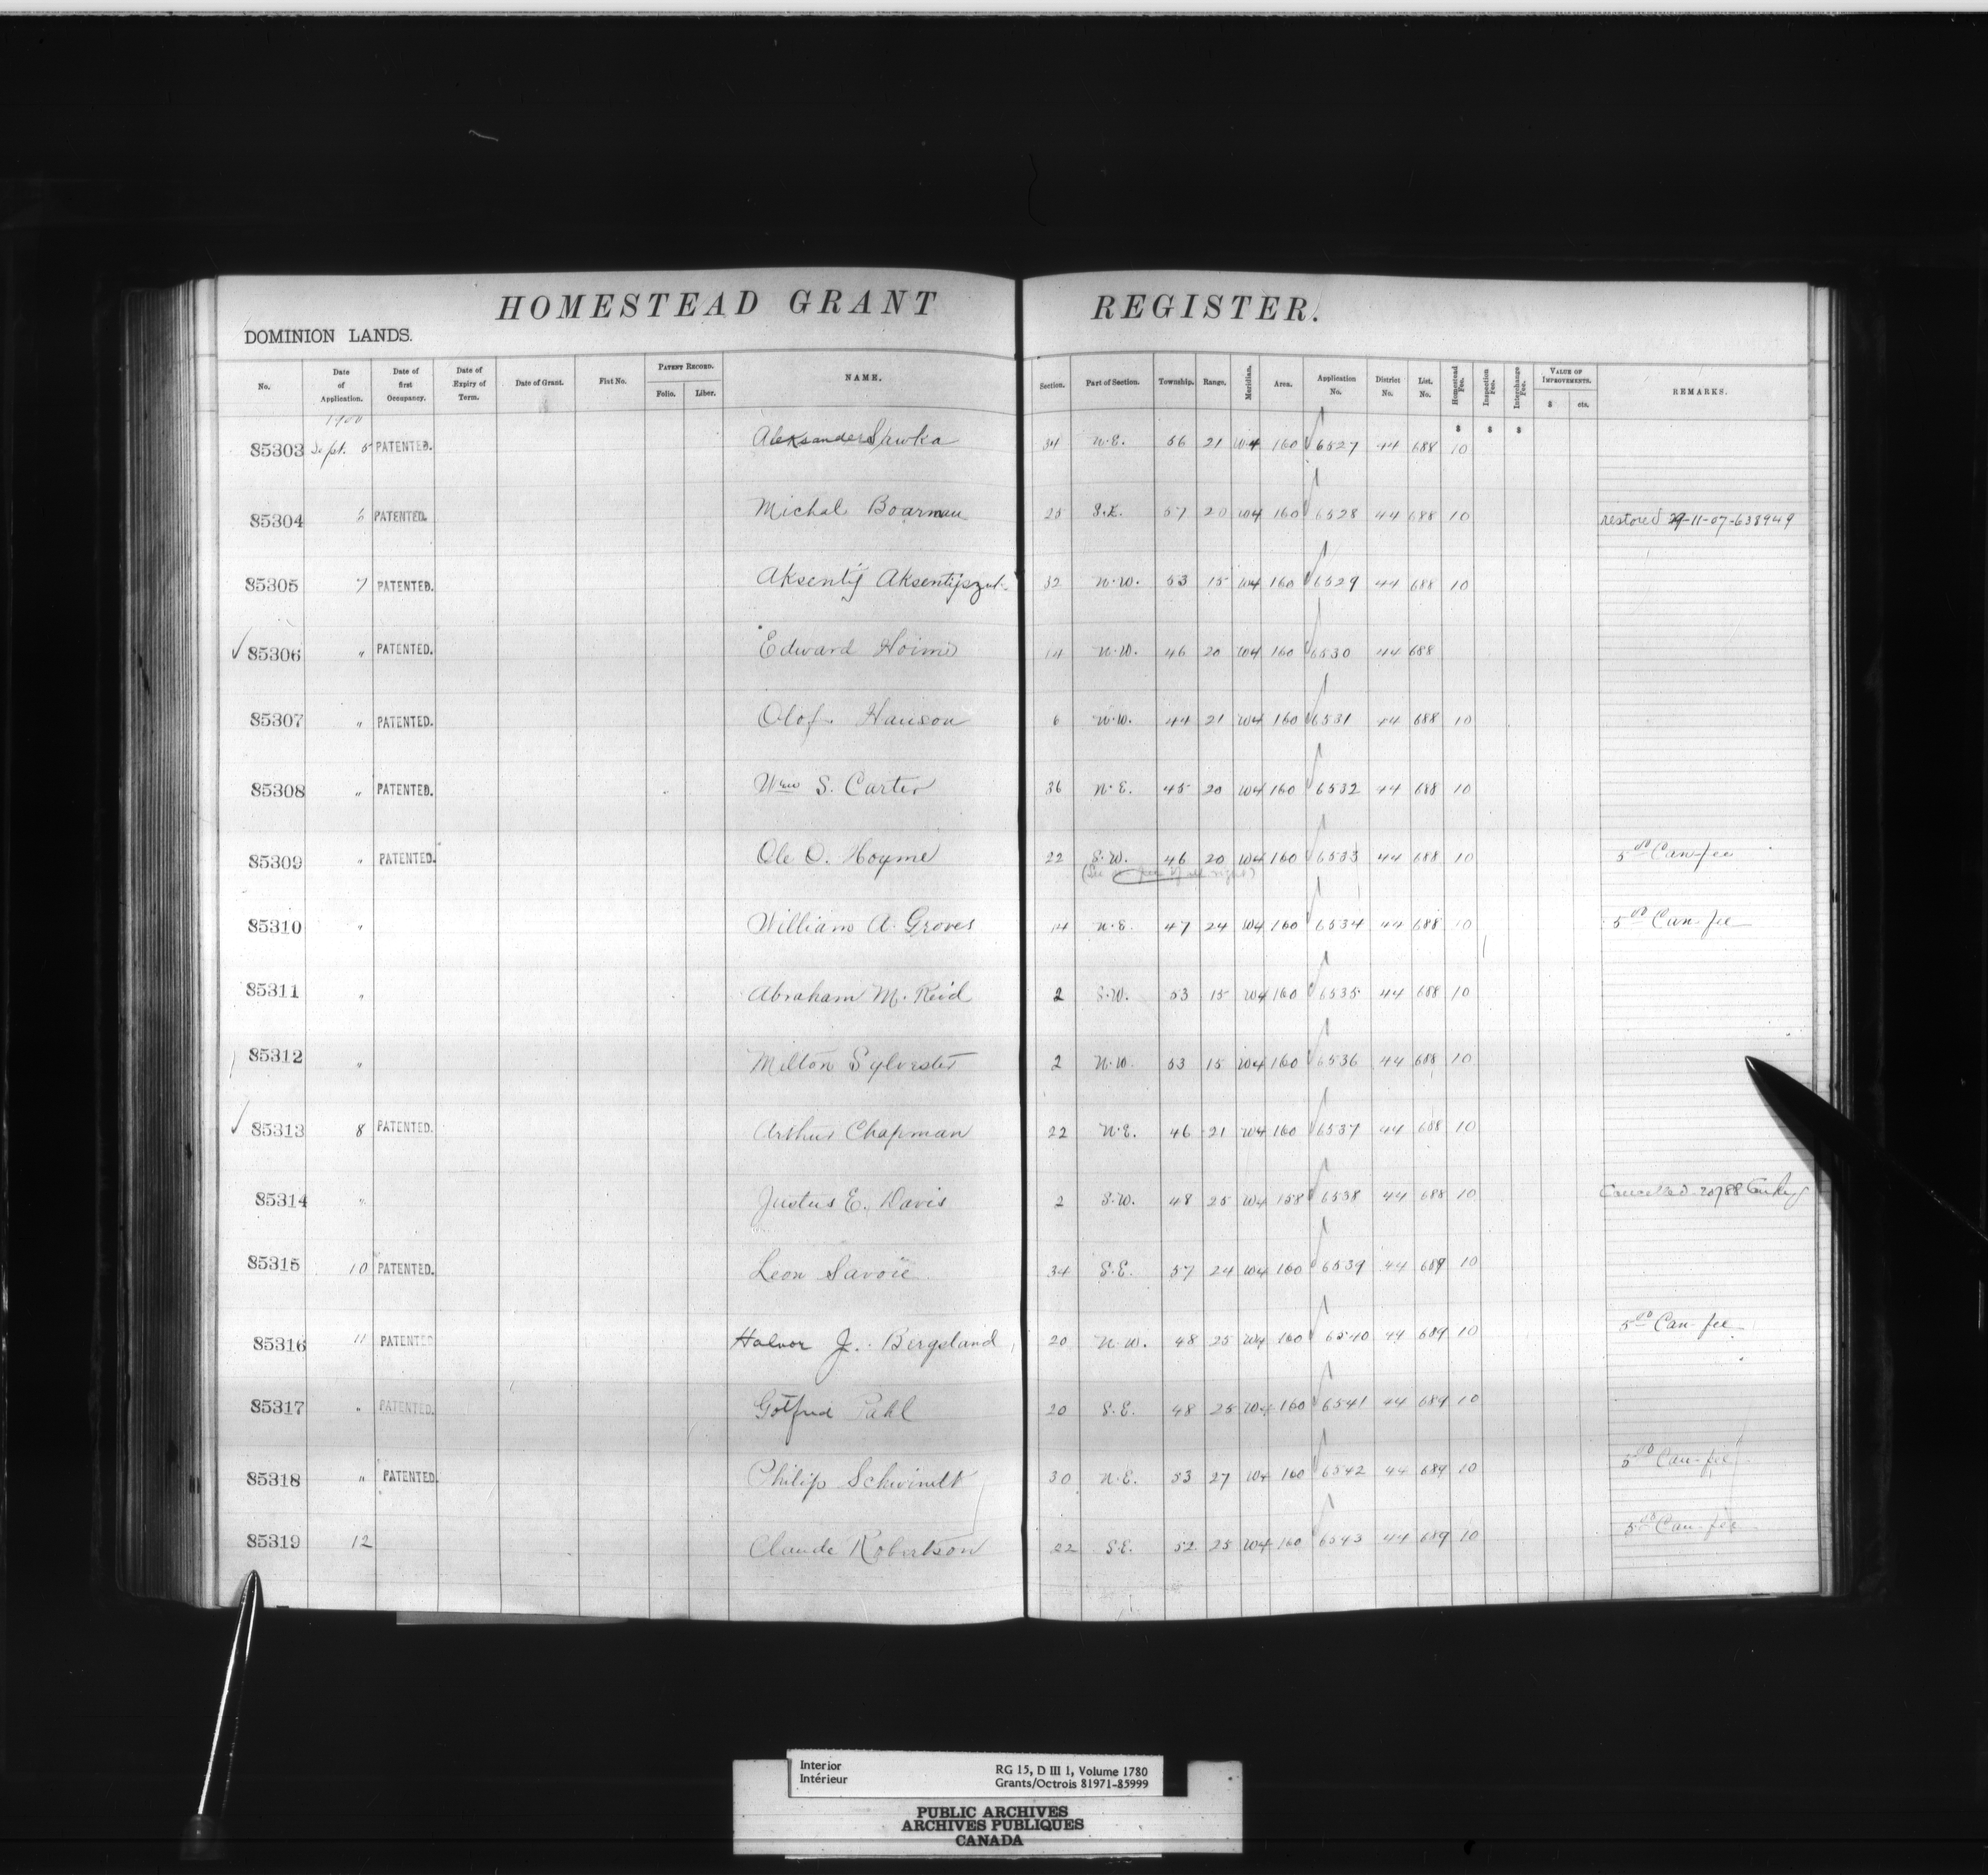 HOMESTEAD GRANT REGISTER.
DOMINION LANDS.
No. Date of Application. Date of first Occupancy. Date of Expiry of Term. Date of Grant. Fiat No. PATENT RECORD. Folio. Liber. NAME. Section. Part of Section. Township. Range. Meridian. Area. Application No. District No. List. No. Homestead Fee. Inspection Fee. Interchange Fee. VALUE OF IMPROVEMENTS. $ cts. REMARKS.
1900 $ $ $
85303 Sept. 5 PATENTED. Aleksander Sawka 34 N.E. 56 21 W4 160 6527 44 688 10
85304 6 PATENTED. Michal Boarman 25 S.E. 57 20 W4 160 6528 44 688 10 restored 29-11-07-638949
85305 7 PATENTED. Aksentij 32 N.W. 53 15 W4 160 6529 44 688 10
85306 " PATENTED. Edward Hoime 14 N.W. 46 20 W4 160 6530 44 688
85307 " PATENTED. Olof Hanson 6 N.W. 44 21 W4 160 6531 44 688 10
85308 " PATENTED. Wm S. Carter 36 N.E. 45 20 W4 160 6532 44 688 10
85309 " PATENTED. Ole O. Hoyme 22 S.W. 46 20 W4 160 6533 44 688 10 5.00 Can-fee
85310 " William A. Groves 14 N.E. 47 24 W4 160 6534 44 688 10 5.00 Can-fee
85311 " Abraham M. Reid 2 S.W. 53 15 W4 160 6535 44 688 10
85312 " Milton Sylvester 2 N.W. 53 15 W4 160 6536 44 688 10
85313 8 PATENTED. Arthur Chapman 22 N.E. 46 21 W4 160 6537 44 688 10
85314 " Justus E. Davis 2 S.W. 48 25 W4 158 6538 44 688 10 Cancelled
85315 10 PATENTED. Leon Savoie 34 S.E. 57 24 W4 160 6539 44 689 10
85316 11 PATENTED Halvor J. Bergsland 20 N.W. 48 25 W4 160 6540 44 689 10 5.00 Can-fee
85317 " PATENTED. Gotfried Pahl 20 S.E. 48 25 W4 160 6541 44 689 10
85318 " PATENTED. Philip Schwindt 30 N.E. 53 27 W4 160 6542 44 689 10 5.00 Can-fee
85319 12 Claude Robertson 22 S.E. 52 25 W4 160 6543 44 689 10 5.00 Can-fee
Interior RG 15, D III 1, Volume 1780
Intérieur Grants/Octrois 81971-85999
PUBLIC ARCHIVES
ARCHIVES PUBLIQUES
CANADA